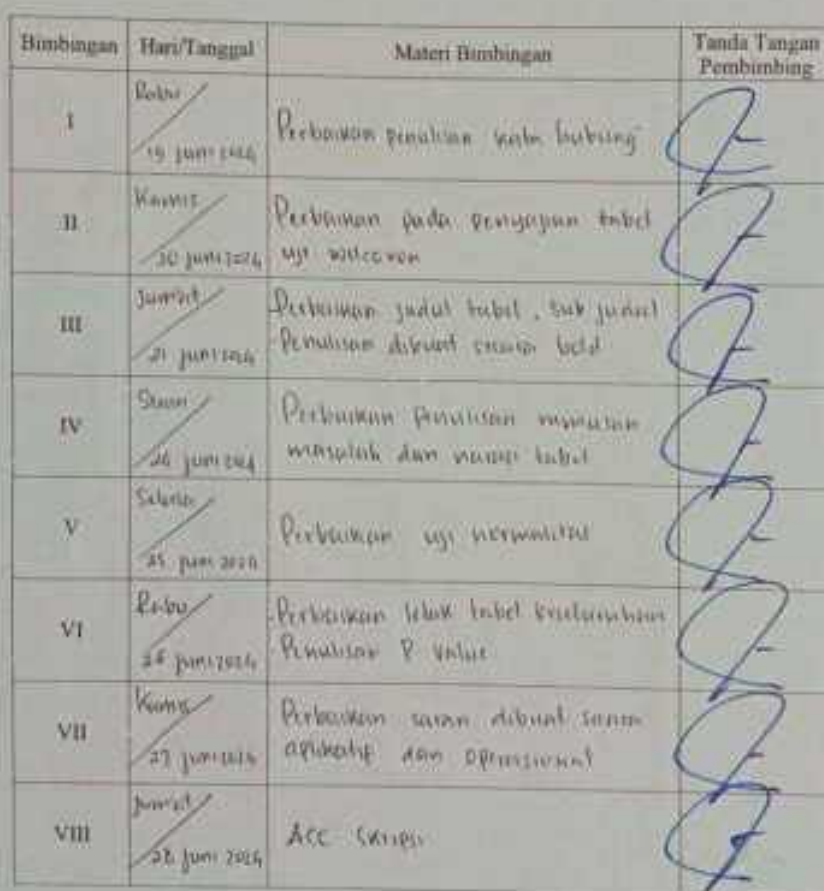 Bimbingan Hari/Tanggal Materi Bimbingan Tanda Tangan Pembimbing
I Rabu 19 Juni 2024 Perbaikan penulisan kata hubung
II Kamis 20 Juni 2024 Perbaikan pada penyajian tabel
uji wilcoxon
III Jumat 21 Juni 2024 - Perbaikan judul tabel, sub judul
- Penulisan dibuat secara bold
IV Senin Juni 2024 Perbaikan penulisan rumusan
masalah dan narasi tabel
V Selasa 25 Juni 2024 Perbaikan uji normalitas
VI Rabu 26 Juni 2024 - Perbaikan letak tabel keseluruhan
Penulisan P value
VII Kamis 27 Juni 2024 Perbaikan saran dibuat
aplikatif dan operasional
VIII Jumat 28 Juni 2024 ACC Skripsi